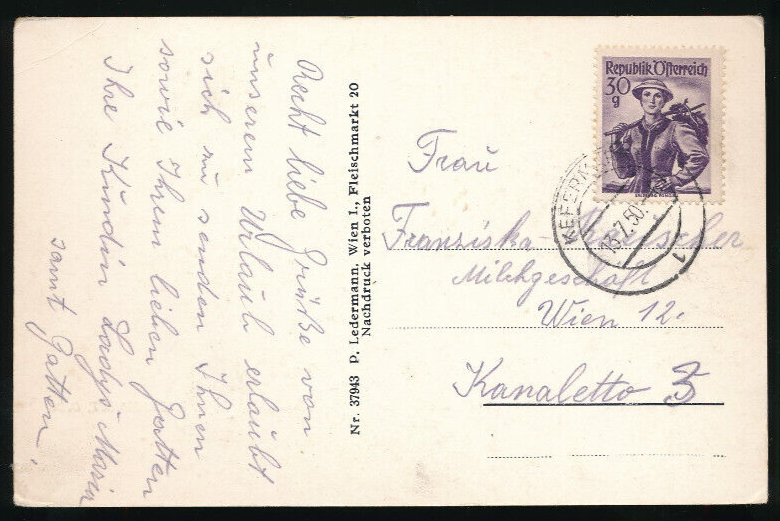 Recht liebe Grüße von
unserem Urlaub erlaubt
sich zu senden Ihnen
sowie Ihrem lieben Gatten
Ihre Kundin Maria
samt Gatten.
Nr. 37943 P. Ledermann, Wien I., Fleischmarkt 20
Nachdruck verboten
Republik Österreich
30
g
15.7.50
1
Frau
Franziska
Milchgeschäft
Wien 12.
Kanaletto 3